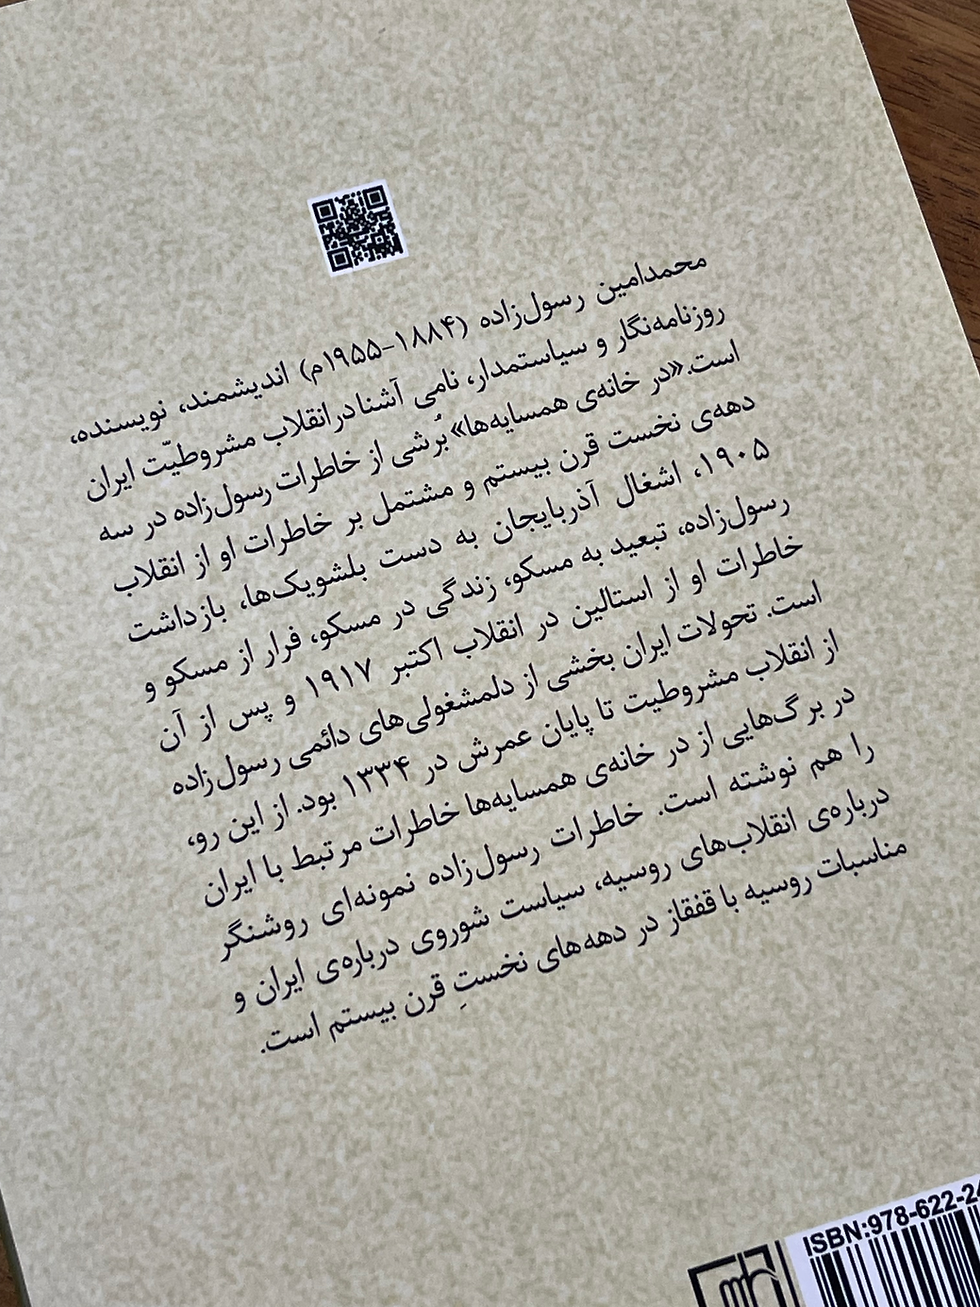 محمدامین رسول‌زاده (۱۸۸۴-۱۹۵۵م) اندیشمند، نویسنده،
روزنامه‌نگار و سیاستمدار، نامی آشنا در انقلاب مشروطیّت ایران
است.«در خانه‌ی همسایه‌ها» بُرشی از خاطرات رسول‌زاده در سه
دهه‌ی نخست قرن بیستم و مشتمل بر خاطرات او از انقلاب
۱۹۰۵، اشغال آذربایجان به دست بلشویک‌ها، بازداشت
رسول‌زاده، تبعید به مسکو، زندگی در مسکو، فرار از مسکو و
خاطرات او از استالین در انقلاب اکتبر ۱۹۱۷ و پس از آن
است. تحولات ایران بخشی از دلمشغولی‌های دائمی رسول‌زاده
از انقلاب مشروطیت تا پایان عمرش در ۱۳۳۴ بود. از این رو،
در برگ‌هایی از در خانه‌ی همسایه‌ها خاطرات مرتبط با ایران
را هم نوشته است. خاطرات رسول‌زاده نمونه‌ای روشنگر
درباره‌ی انقلاب‌های روسیه، سیاست شوروی درباره‌ی ایران و
مناسبات روسیه با قفقاز در دهه‌های نخستِ قرن بیستم است.
ISBN:978-622-2